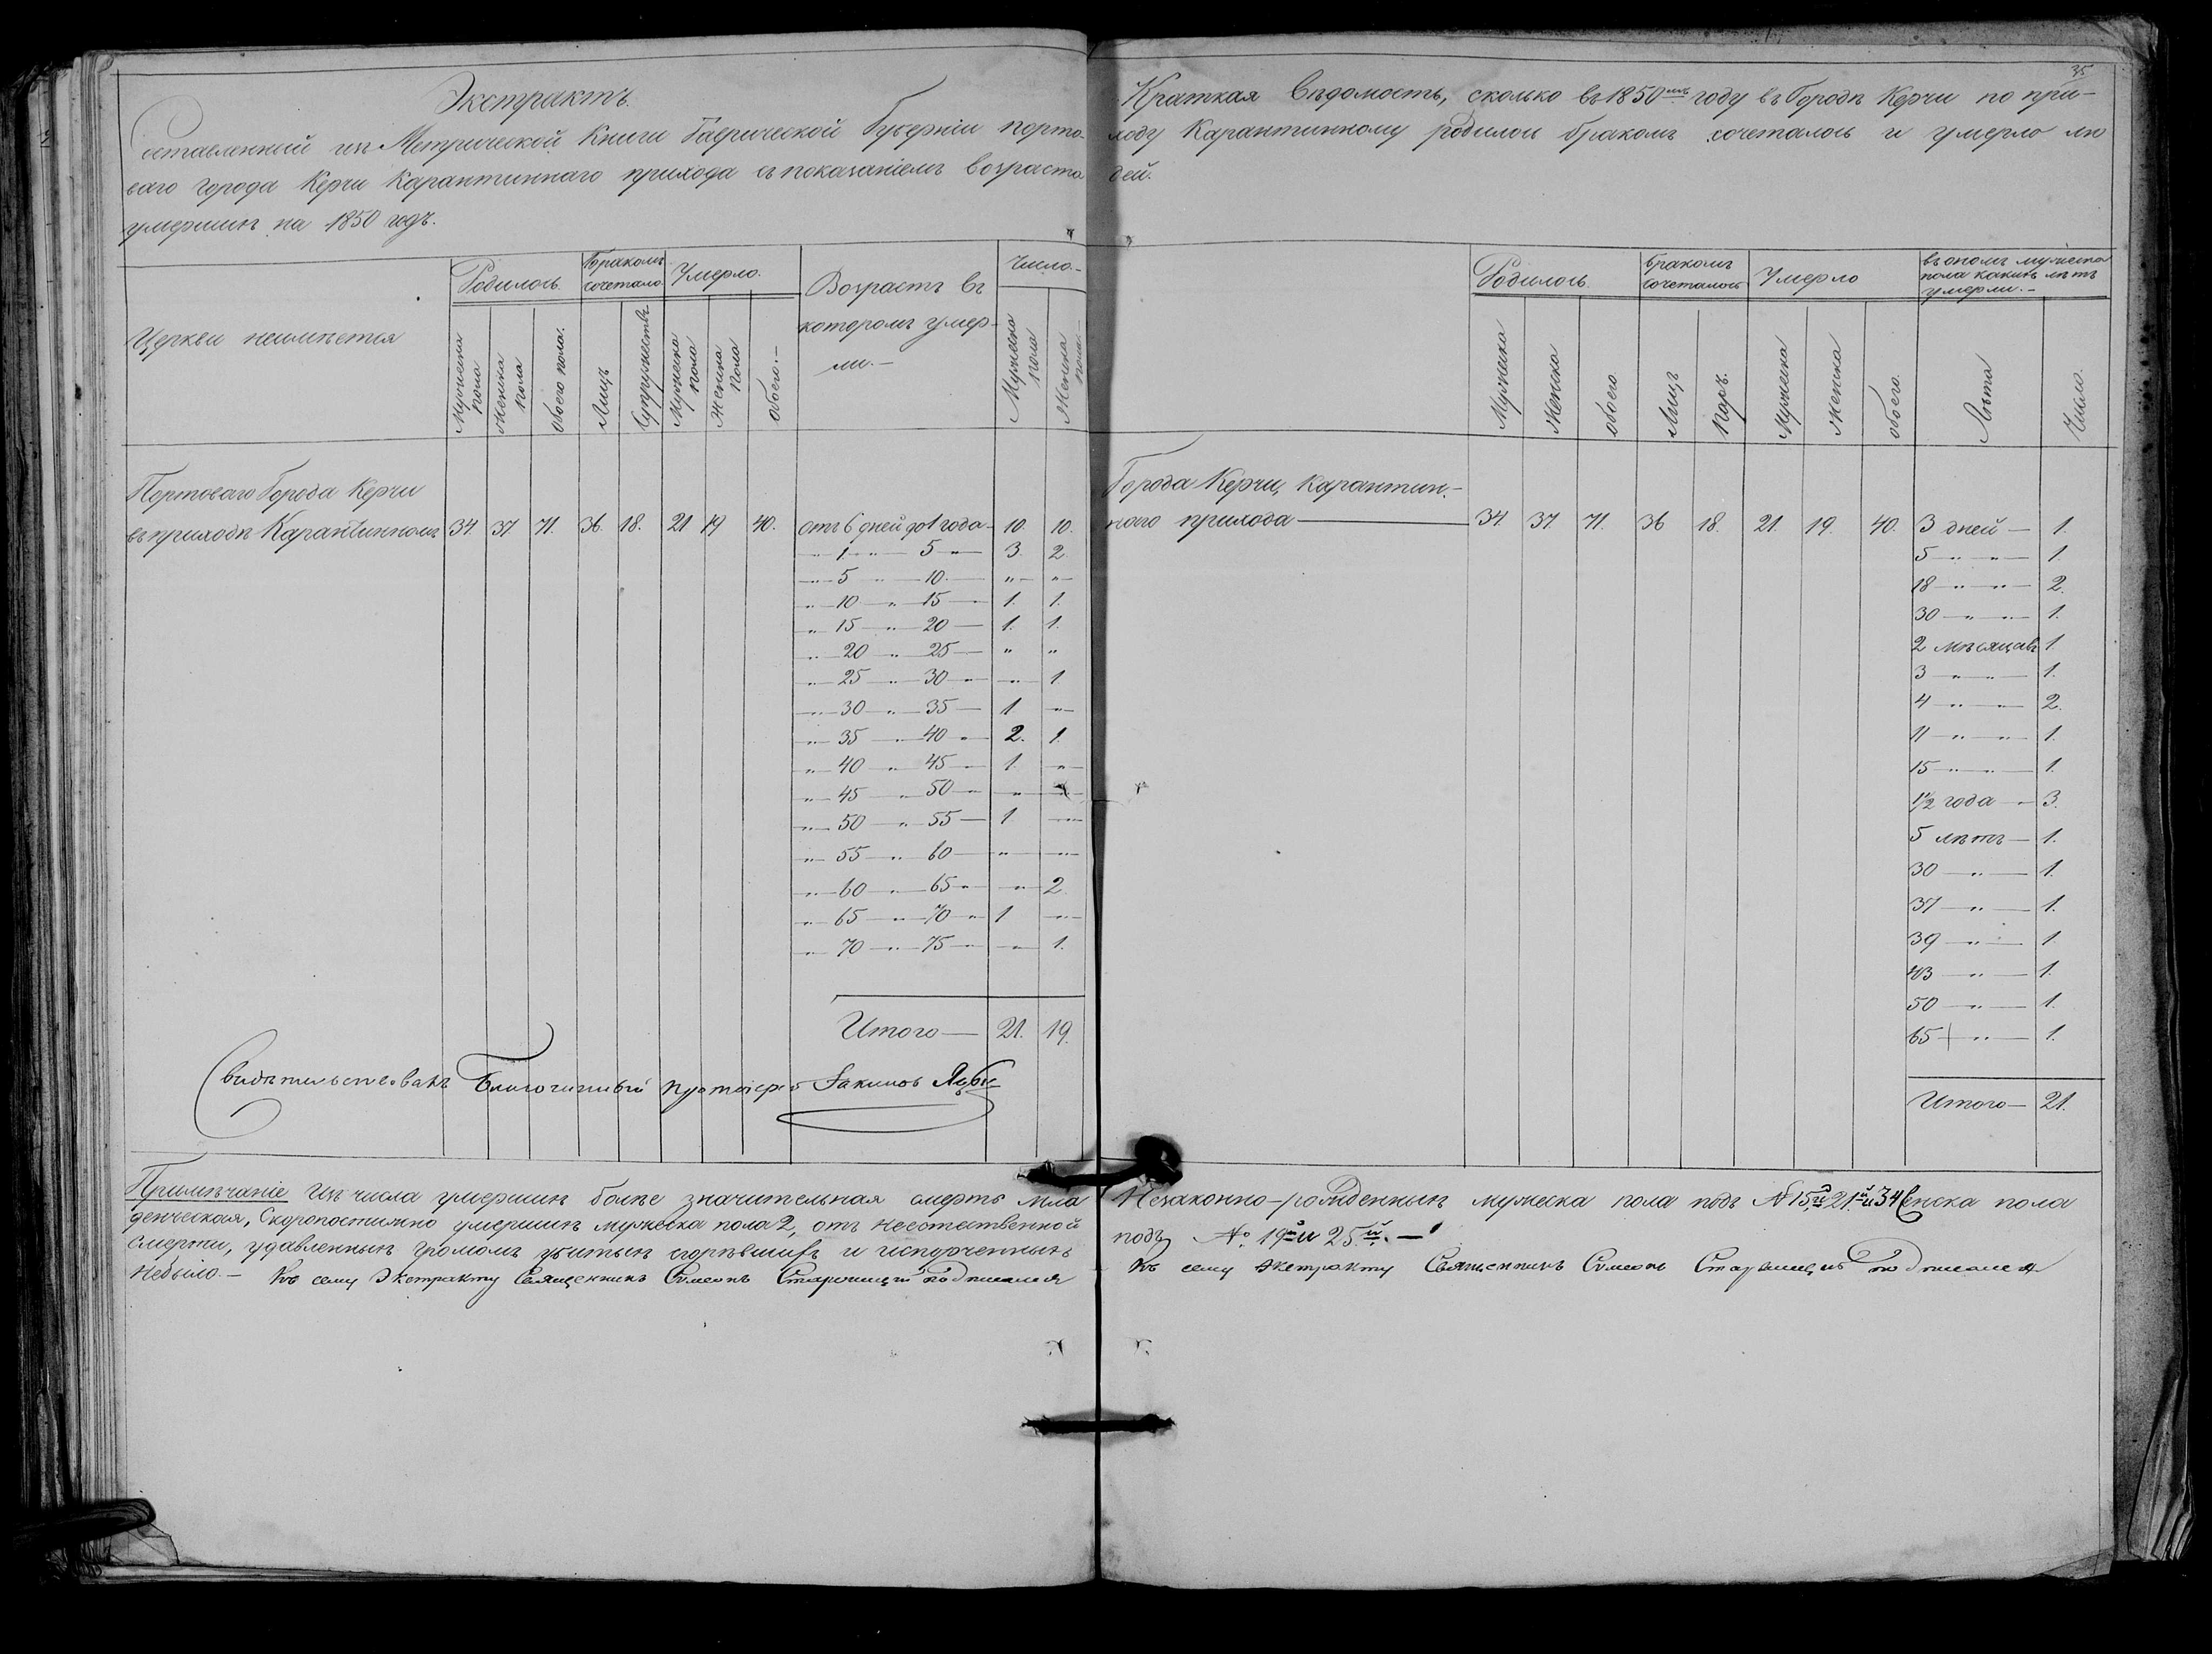 Экстрактъ.
Составленный изъ Метрической Книги Таврической Губерніи порто-
ваго города Керчи Карантиннаго прихода съ показаніемъ возраста
умершихъ на 1850 годъ.
Церкви неимѣется
Родилось.
Бракомъ сочеталось
Умерло.
Возрастъ въ
которомъ умер-
ли.-
Число.-
Мужеска пола
Женска пола
Обоего пола.
Лицъ
Супружествъ
Мужеска пола
Женска пола
обоего.-
Мужеска пола
Женска пола
Портоваго Города Керчи
въ приходѣ Карантинномъ 34. 37. 71. 36. 18. 21 19 40. отъ 6 дней до 1 года 10. 10.
" 1 " 5 " 3. 2
" 5 " 10. " "
" 10 " 15 " 1. 1.
" 15 " 20 1. 1.
" 20 " 25 " "
" 25 " 30 " " 1
" 30 " 35 1 "
" 35 " 40 " 2. 1.
" 40 " 45 " 1. "
" 45 " 50 " " "
" 50 " 55 1 "
" 55 " 60 " "
" 60 " 65 " " 2.
" 65 " 70 " 1 "
" 70 " 75 " " 1.
Итого 21. 19.
Свидѣтельствовалъ Благочинный протоіерей
Примѣчаніе Изъ числа умершихъ более значительная смерть мла
денческая, Скоропостижно умершихъ мужеска пола 2, отъ неестественной
смерти, удавленныхъ громомъ убитыхъ сгорѣвшихъ и испорченныхъ
небыло.- Къ сему Экстракту Священникъ Симеонъ подписался
35
Краткая Вѣдомость, сколько въ 1850мъ году въ Городѣ Керчи по при-
ходу Карантинному родилось бракомъ сочеталось и умерло лю
дей.
Родилось.
Бракомъ сочеталось
Умерло
въ ономъ мужеска
пола какихъ лѣтъ
умерли.-
Мужеска
Женска
обоего.
Лицъ
Паръ.
Мужеска
Женска
обоего.
Лѣта
Число.
Города Керчи, Карантин-
наго прихода 34. 37. 71. 36 18. 21. 19. 40. 3 дней 1.
5 " " 1.
18 " " 2.
30 " " 1.
2 мѣсяцавъ 1
3 " " 1.
4 " " 2.
11 " " 1.
15 " " 1.
1½ года " 3.
5 лѣтъ 1.
30 " 1.
37 " 1.
39 " 1
43 " 1.
50 " 1.
65 " 1.
Итого 21.
Незаконно-рожденныхъ мужеска пола подъ № 15й, 21й и 34 Женска пола
подъ № 19й и 25й.-
Къ сему Экстракту Священникъ Симеонъ подписался